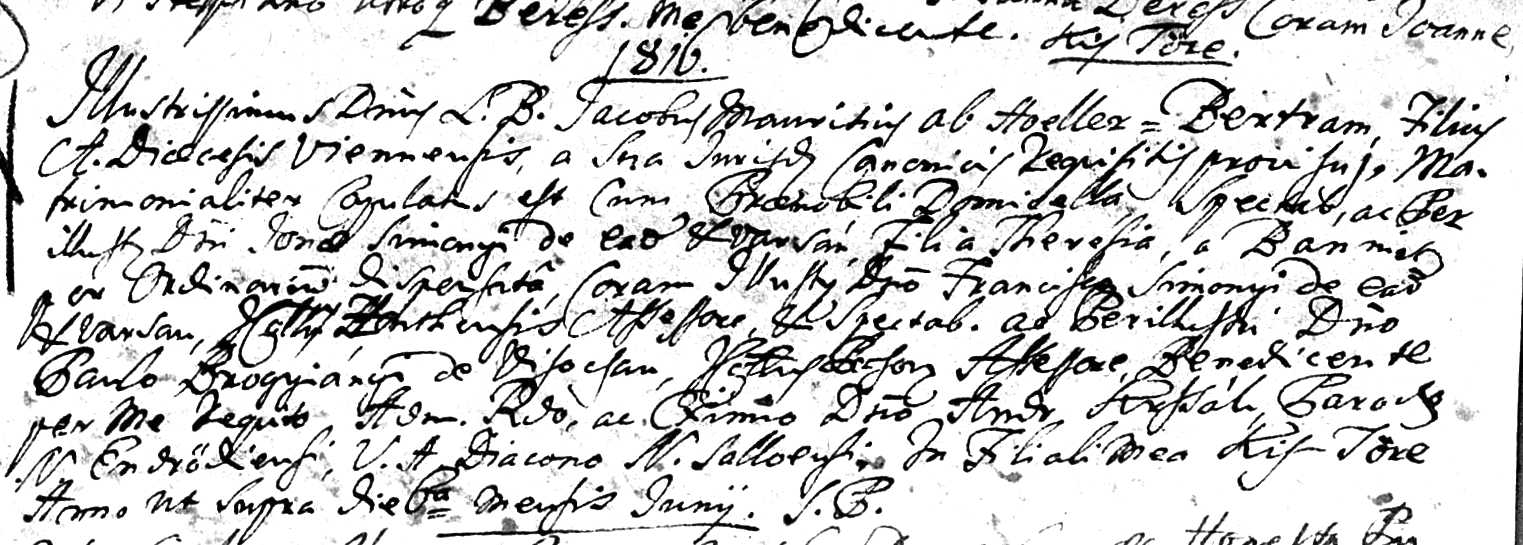 Beress. Me benedicente. Kis Töre. Coram Joanne
1816.
Illustrissimus Dnus L. B. Jacobus Mauritius ab Hoeller = Bertram, Filius
A. Diœcesis Viennensis, a sua Jurisd Canonicis requisitis provisus, Ma-
trimonialiter Copulatus est cum Prænobili Domicella Spectab, ac Per
illust Dni Jonæ Simonyi de ead & Varsán Filia Theresia, a Bannis
per Ordinariu dispensata, Coram Illust Dno Francisco Simonyi de ead
& Varsan, Assessore, & Spectab. ac Perillustri Dno
Paulo Brogyányi de Visocsan, Assessore, Benedicente
per Me requito Adm. Rdo, ac Eximio Dno Andr Parocho
N. Endrödiensi, V. A. Diacono N. Salloensi, In Filiali Mea Kis-Töre
Anno ut supra die 6ta mensis Junij. S. P.